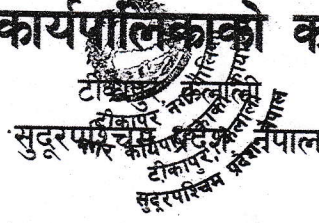 कार्यपालिकाको क
टीकापुर, कैलाली
सुदूरपश्चिम प्रदेश, नेपाल
टीकापुर नगरपालिका
टीकापुर, कैलाली
सुदूरपश्चिम प्रदेश, नेपाल